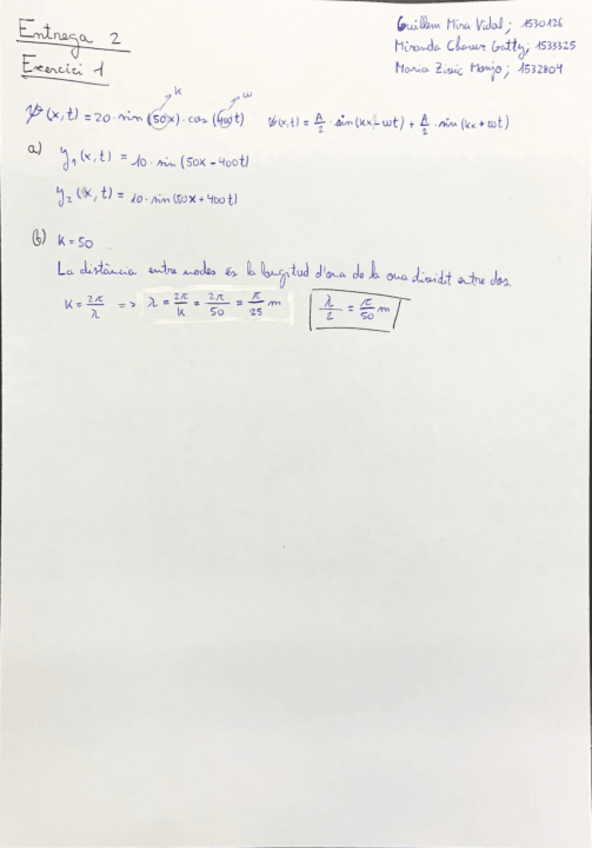 Entrega 2
Exercici 1
Guillem Mira Vidal; 1530126
Miranda Gatty; 1533325
Maria; 1532804
k w
ψ(x,t) = 20·sin(50x)·cos(400t) ψ(x,t) = A/2 · sin(kx-wt) + A/2 · sin(kx+wt)
a) y₁(x,t) = 10·sin(50x-400t)
y₂(x,t) = 10·sin(50x+400t)
(b) k=50
La distància entre nodes és la longitud d'ona de la ona dividit entre dos
K = 2π/λ => λ = 2π/k = 2π/50 = π/25 m λ/2 = π/50 m